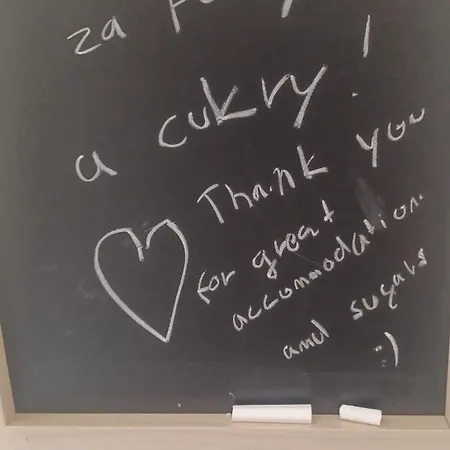 za
a cukry!
Thank you
for great
accommodation
and sugars
:)